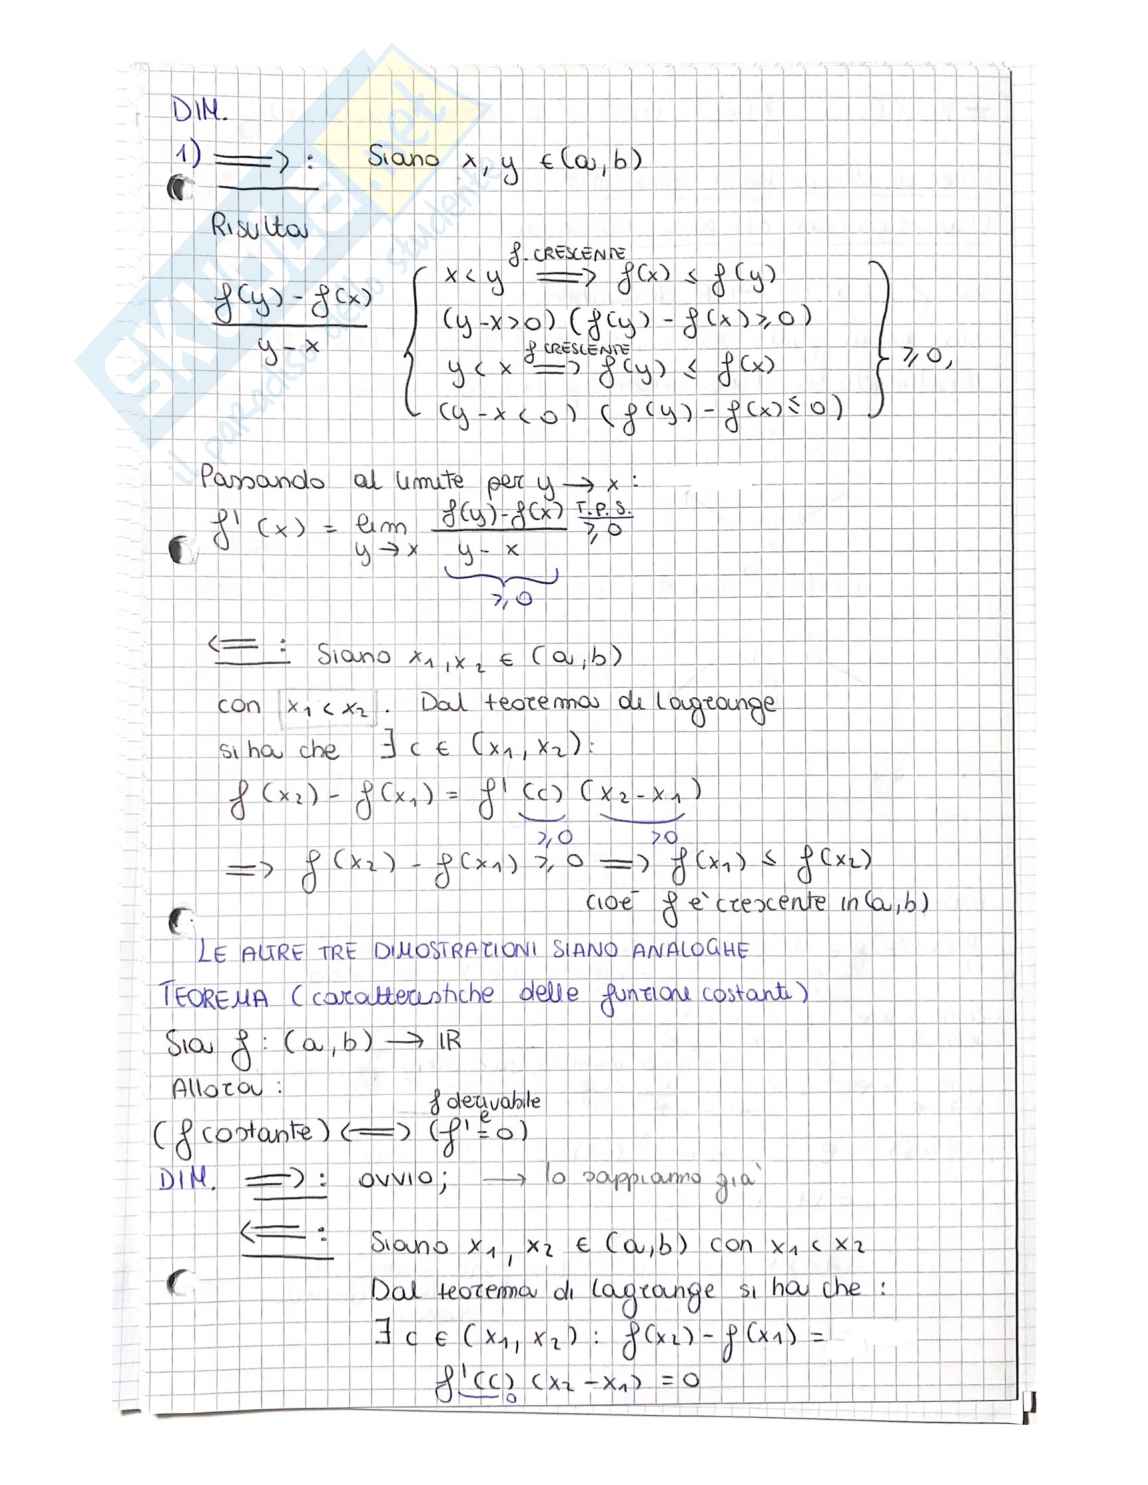 DIM.
1) ⟹ : Siano x, y ∈ (a,b)
Risulta
f. CRESCENTE
x < y ⟹ f(x) ≤ f(y)
f(y) - f(x) / y - x
(y-x>0) (f(y) - f(x) ≥ 0)
f CRESCENTE
y < x ⟹ f(y) ≤ f(x)
≥ 0,
(y-x<0) (f(y) - f(x) ≤ 0)
Passando al limite per y → x :
f'(x) = lim y→x f(y)-f(x) / y - x T.P.S. ≥ 0
≥ 0
⟸ : Siano x1, x2 ∈ (a,b)
con x1 < x2 . Dal teorema di Lagrange
si ha che ∃ c ∈ (x1, x2):
f(x2) - f(x1) = f'(c) (x2-x1)
≥0 >0
⟹ f(x2) - f(x1) ≥ 0 ⟹ f(x1) ≤ f(x2)
cioè f è crescente in (a,b)
LE ALTRE TRE DIMOSTRAZIONI SIANO ANALOGHE
TEOREMA (caratteristiche delle funzioni costanti)
Sia f : (a,b) → IR
Allora :
f derivabile
e
(f costante) ⟺ (f' = 0)
DIM. ⟹ : ovvio; → lo sappiamo già
⟸ : Siano x1, x2 ∈ (a,b) con x1 < x2
Dal teorema di Lagrange si ha che :
∃ c ∈ (x1, x2) : f(x2) - f(x1) =
f'(c) (x2-x1) = 0
0
SKUOLA.net
il paradiso dello studente